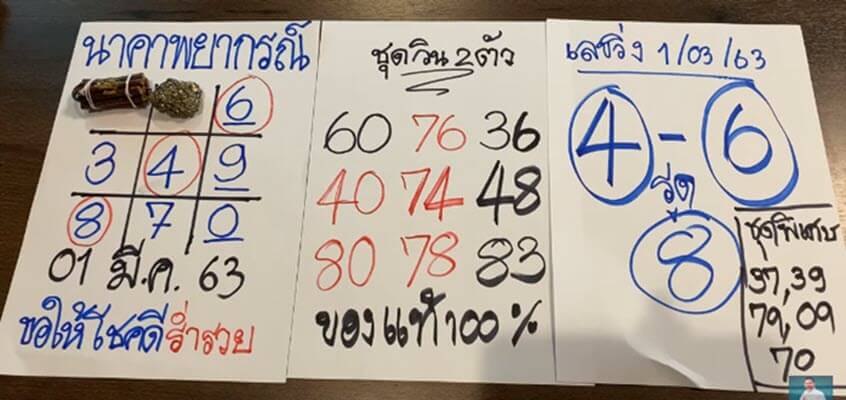 นาคาพยากรณ์
6
3 4 9
8 7 0
01 มี.ค. 63
ขอให้โชคดีร่ำรวย
ชุดวิน 2 ตัว
60 76 36
40 74 48
80 78 83
ของแท้ 100 %
เลขวิ่ง 1/03/63
4 - 6
รูด
8
ชุดพิเศษ
37,39
79,09
70